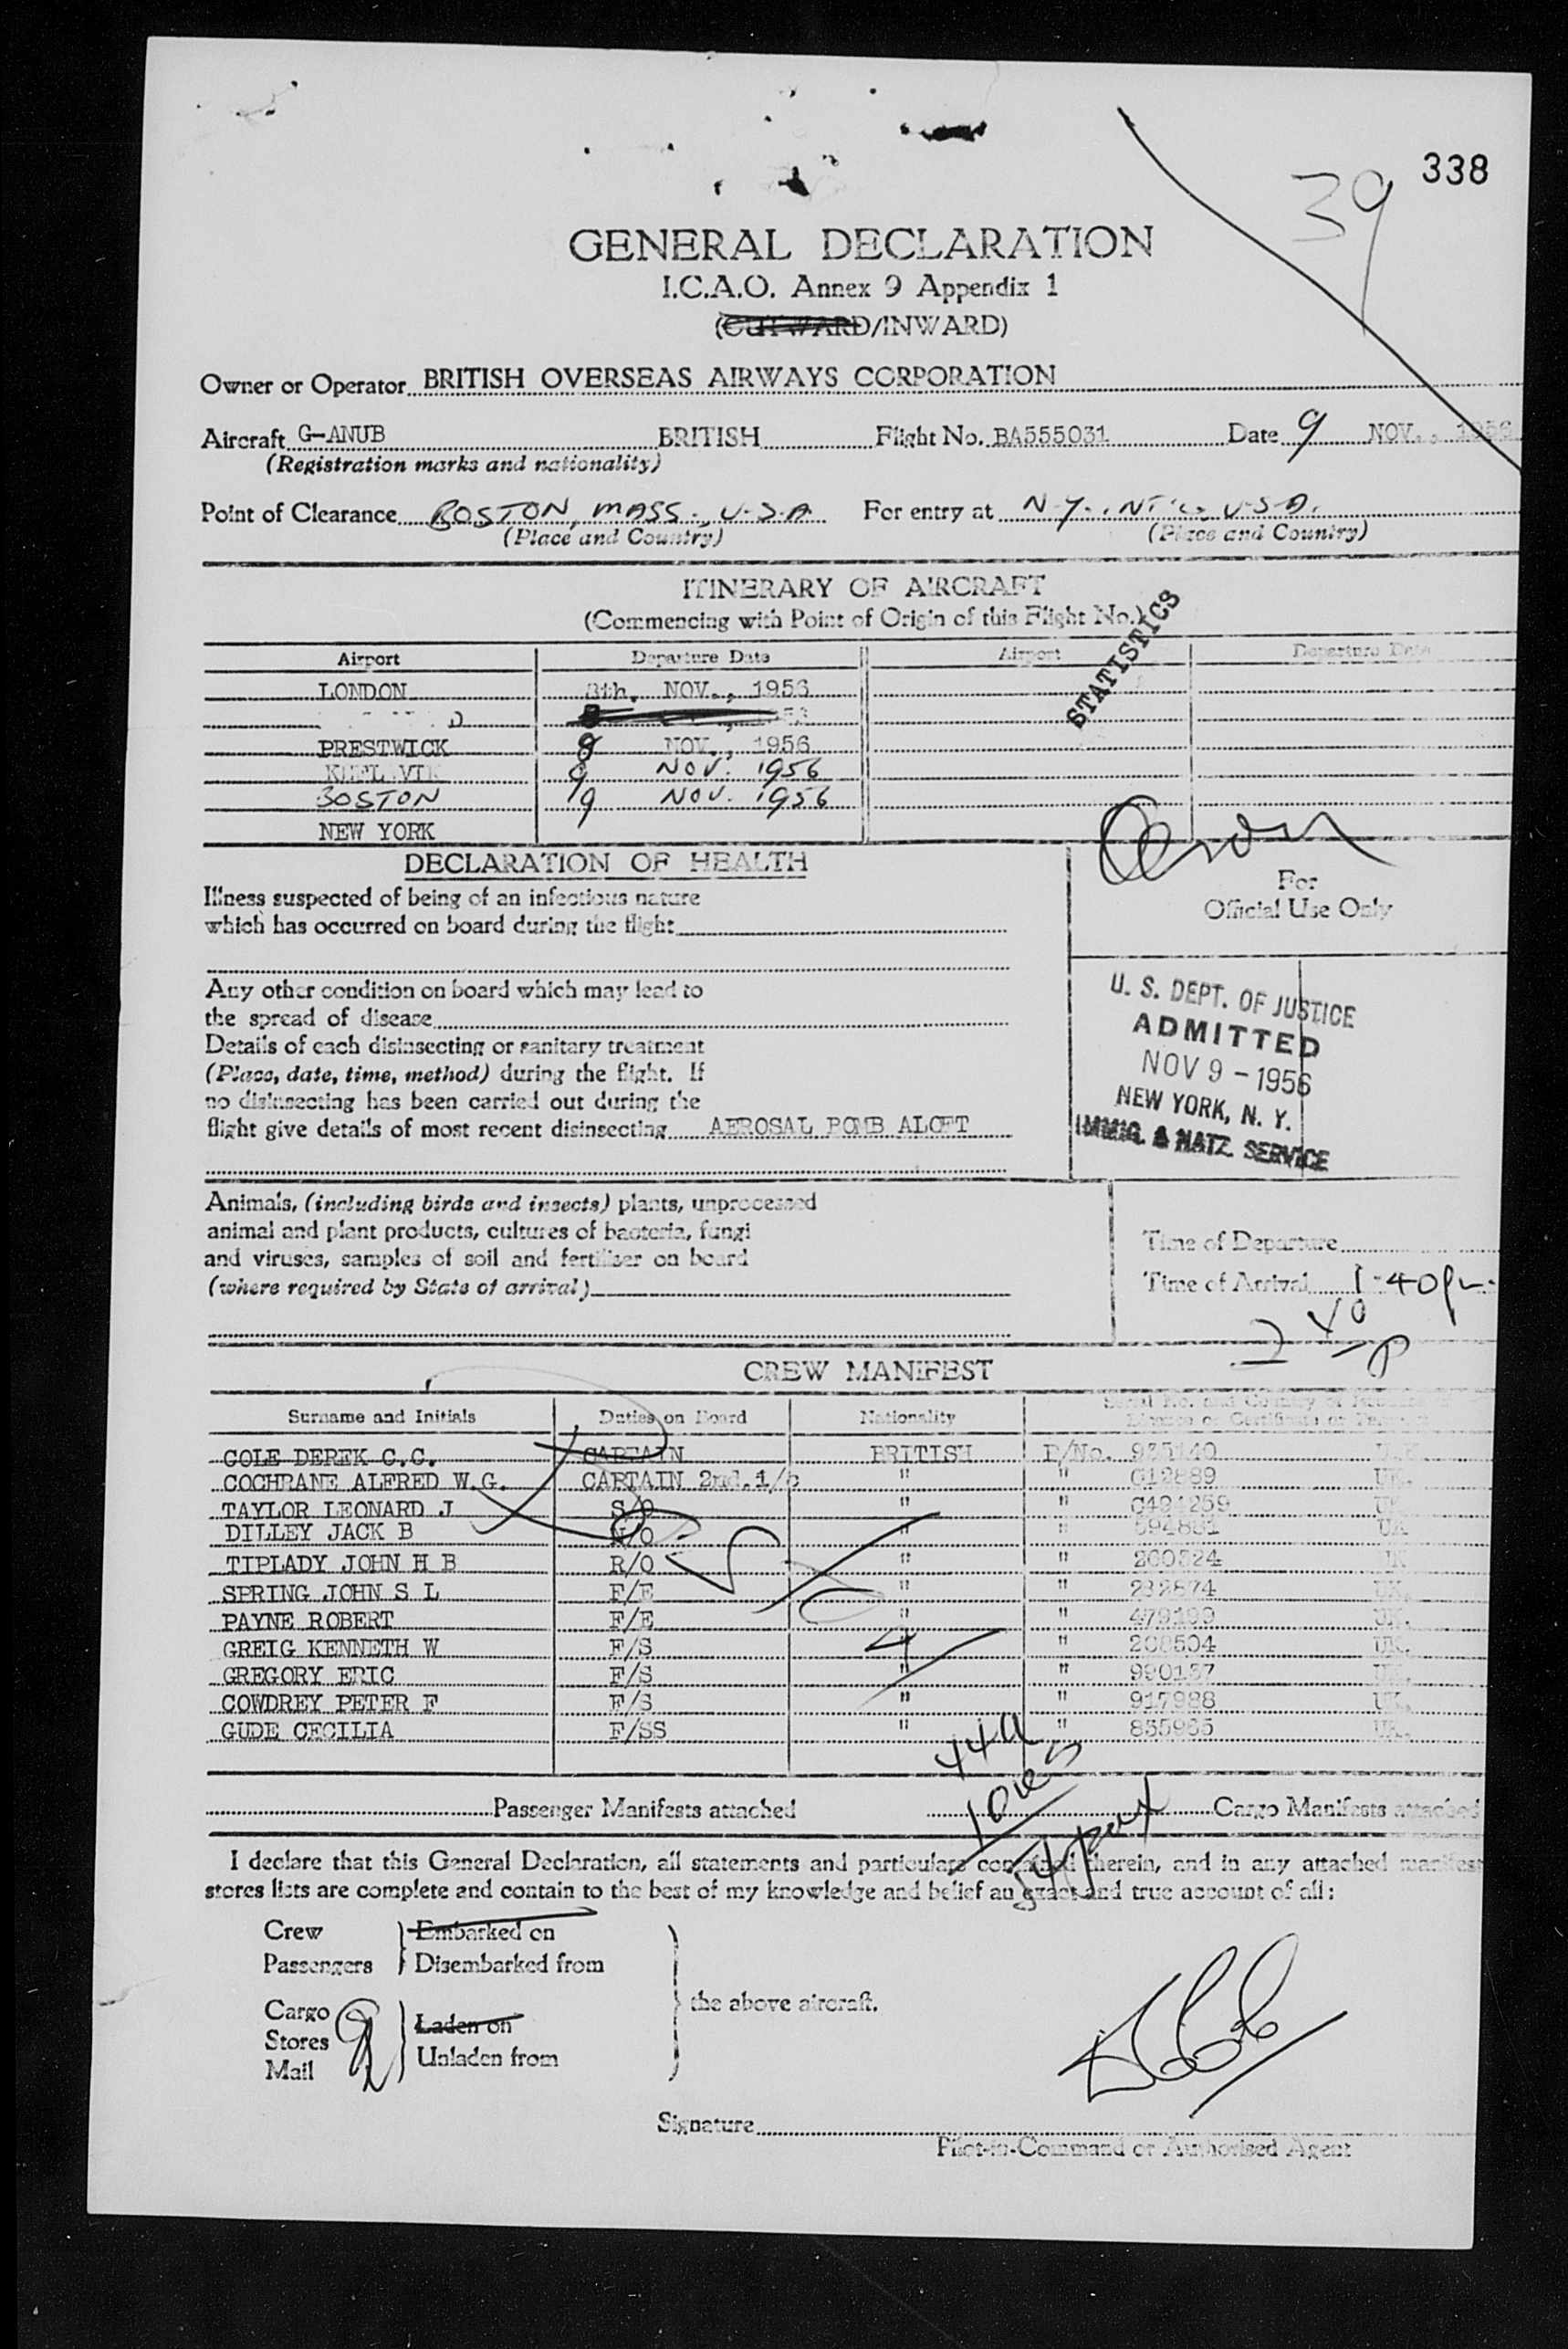 338
39
GENERAL DECLARATION
I.C.A.O. Annex 9 Appendix 1
(OUTWARD/INWARD)
Owner or Operator BRITISH OVERSEAS AIRWAYS CORPORATION
Aircraft G-ANUB BRITISH Flight No. BA555031 Date 9 NOV., 1956
(Registration marks and nationality)
Point of Clearance BOSTON, MASS., U.S.A For entry at N.Y., U.S.A.
(Place and Country) (Place and Country)
ITINERARY OF AIRCRAFT
(Commencing with Point of Origin of this Flight No.)
STATISTICS
Airport Departure Date Airport Departure Date
LONDON 8th. NOV., 1956
PRESTWICK 8 NOV., 1956
KEFLAVIK 9 NOV. 1956
BOSTON 9 NOV. 1956
NEW YORK
DECLARATION OF HEALTH
For
Official Use Only
Illness suspected of being of an infectious nature
which has occurred on board during the flight
Any other condition on board which may lead to
the spread of disease
Details of each disinsecting or sanitary treatment
(Place, date, time, method) during the flight. If
no disinsecting has been carried out during the
flight give details of most recent disinsecting AEROSAL BOMB ALOFT
U. S. DEPT. OF JUSTICE
ADMITTED
NOV 9 - 1956
NEW YORK, N. Y.
IMMIG. & NATZ. SERVICE
Animals, (including birds and insects) plants, unprocessed
animal and plant products, cultures of bacteria, fungi
and viruses, samples of soil and fertiliser on board
(where required by State of arrival)
Time of Departure
Time of Arrival 1-40 pm
CREW MANIFEST
Surname and Initials Duties on Board Nationality
COLE DEREK C.C. CAPTAIN BRITISH P/No. 935140 U.K.
COCHRANE ALFRED W.G. CAPTAIN 2nd. i/c " " C12889 UK.
TAYLOR LEONARD J S/O " " C494259 UK
DILLEY JACK B N/O " " 594831 UK
TIPLADY JOHN H B R/O " " 260324 UK
SPRING JOHN S L F/E " " 232874 UK.
PAYNE ROBERT F/E " " 479199 UK.
GREIG KENNETH W F/S " " 208504 UK.
GREGORY ERIC F/S " " 990157 UK.
COWDREY PETER F F/S " " 917988 UK.
GUDE CECILIA F/SS " " 855965 UK.
44a
54 pax
Passenger Manifests attached Cargo Manifests attached
I declare that this General Declaration, all statements and particulars contained therein, and in any attached manifest
stores lists are complete and contain to the best of my knowledge and belief an exact and true account of all:
Crew Embarked on
Passengers Disembarked from
the above aircraft.
Cargo Laden on
Stores
Mail Unladen from
Signature
Pilot-in-Command or Authorised Agent